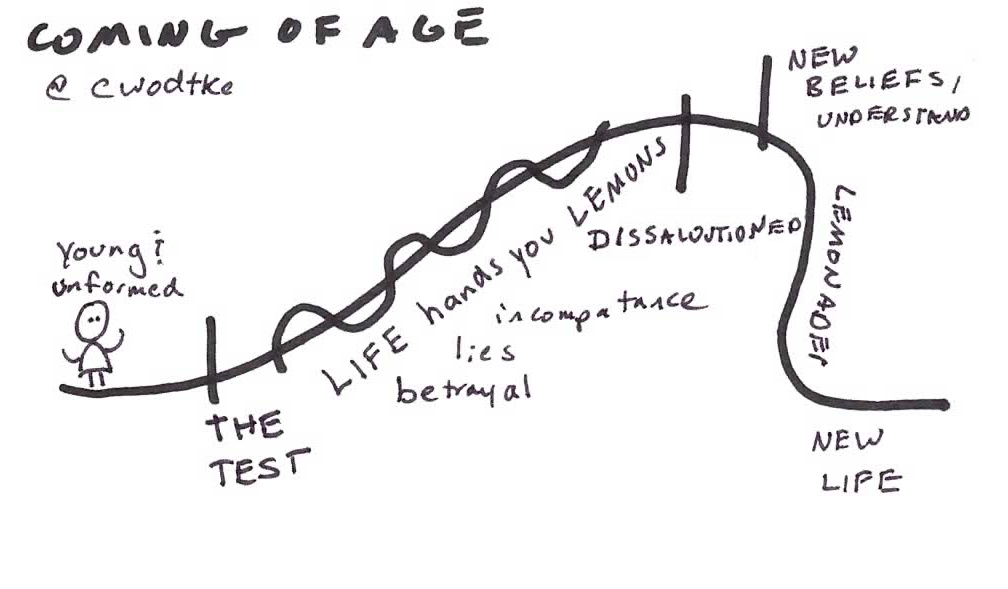 COMING OF AGE
@ cwodtke
Young &
unformed
THE
TEST
LIFE hands you LEMONS
incompatance
lies
betrayal
DISSALOUTIONED
NEW
BELIEFS/
UNDERSTAND
LEMONADE!
NEW
LIFE